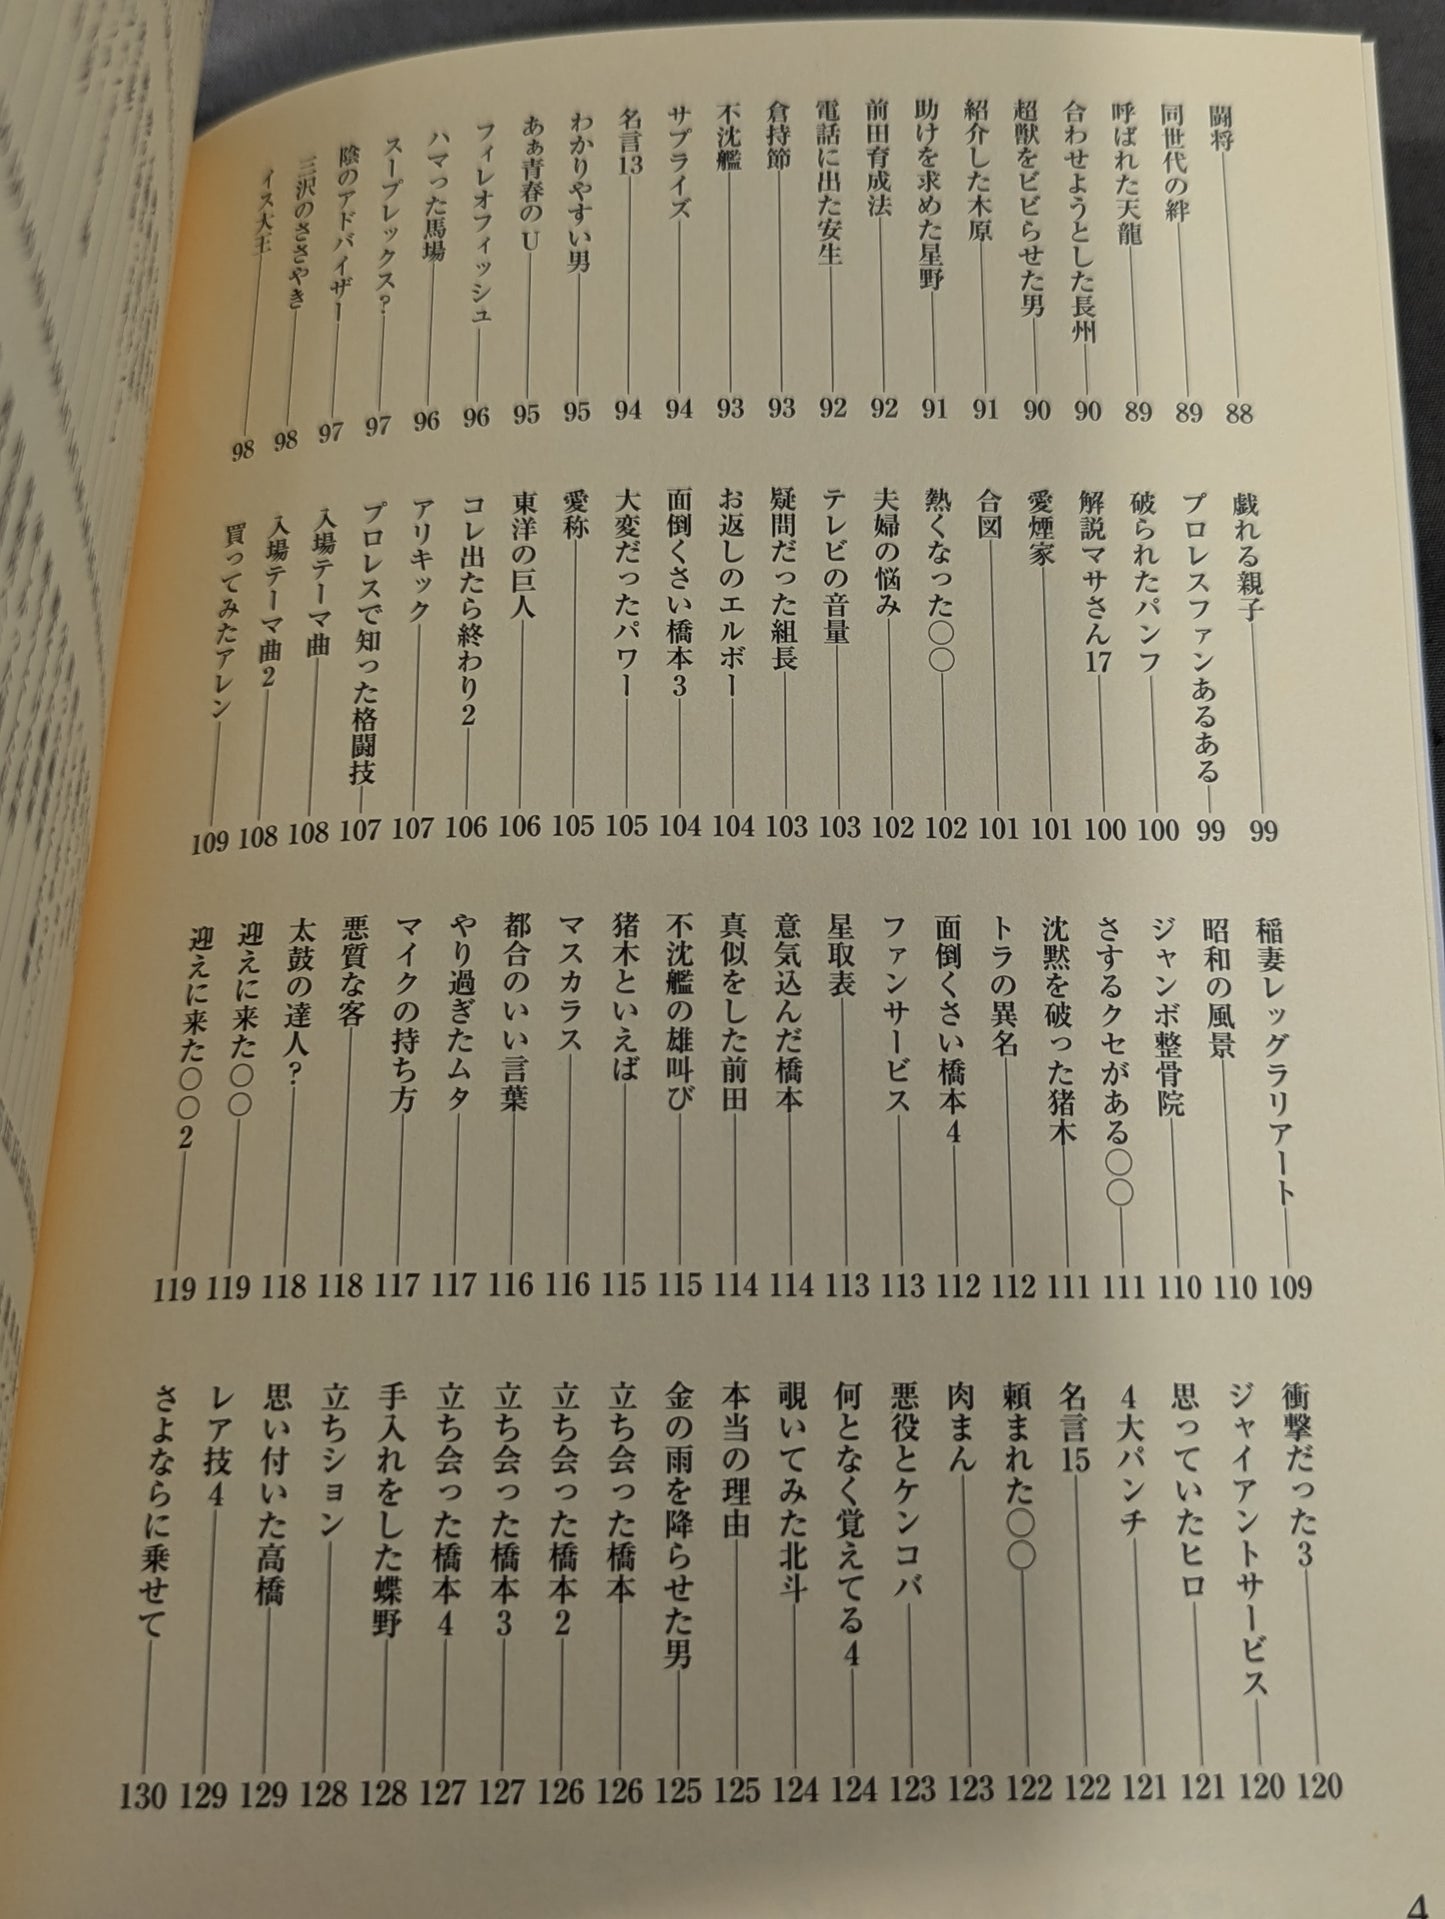 闘将 88
同世代の絆 89
呼ばれた天龍 89
合わせようとした長州 90
超獣をビビらせた男 90
紹介した木原 91
助けを求めた星野 91
前田育成法 92
電話に出た安生 92
倉持節 93
不沈艦 93
サプライズ 94
名言13 94
わかりやすい男 95
あぁ青春のU 95
フィレオフィッシュ 96
ハマった馬場 96
スープレックス？ 97
陰のアドバイザー 97
三沢のささやき 98
イス大王 98
戯れる親子 99
プロレスファンあるある 99
破られたパンフ 100
解説マサさん17 100
愛煙家 101
合図 101
熱くなった〇〇 102
夫婦の悩み 102
テレビの音量 103
疑問だった組長 103
お返しのエルボー 104
面倒くさい橋本3 104
大変だったパワー 105
愛称 105
東洋の巨人 106
コレ出たら終わり2 106
アリキック 107
プロレスで知った格闘技 107
入場テーマ曲 108
入場テーマ曲2 108
買ってみたアレン 109
稲妻レッグラリアート 109
昭和の風景 110
ジャンボ整骨院 110
さするクセがある〇〇 111
沈黙を破った猪木 111
トラの異名 112
面倒くさい橋本4 112
ファンサービス 113
星取表 113
意気込んだ橋本 114
真似をした前田 114
不沈艦の雄叫び 115
猪木といえば 115
マスカラス 116
都合のいい言葉 116
やり過ぎたムタ 117
マイクの持ち方 117
悪質な客 118
太鼓の達人？ 118
迎えに来た〇〇 119
迎えに来た〇〇2 119
衝撃だった3 120
ジャイアントサービス 120
思っていたヒロ 121
4大パンチ 121
名言15 122
頼まれた〇〇 122
肉まん 123
悪役とケンコバ 123
何となく覚えてる4 124
覗いてみた北斗 124
本当の理由 125
金の雨を降らせた男 125
立ち会った橋本 126
立ち会った橋本2 126
立ち会った橋本3 127
立ち会った橋本4 127
手入れをした蝶野 128
立ちション 128
思い付いた高橋 129
レア技4 129
さよならに乗せて 130
4